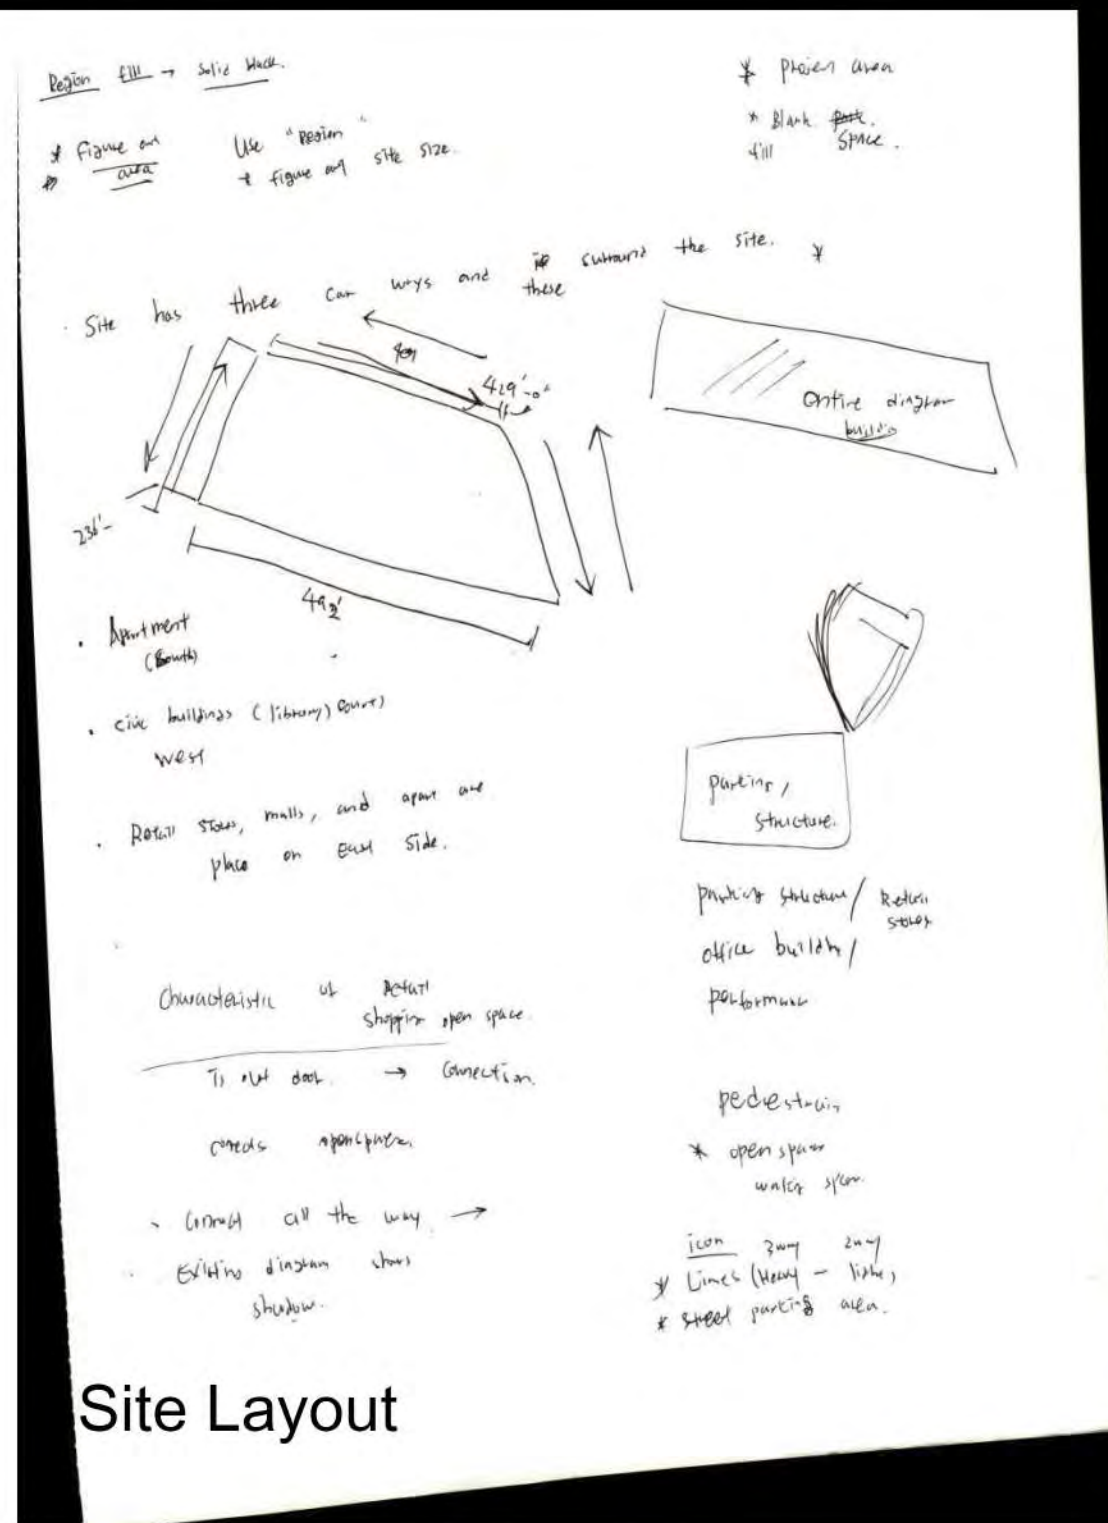 Region fill → solid black.
* Project area
* Figure out
area
Use "Region"
* figure out site size.
* Blank
fill SPACE.
· Site has three car ways and these surround the site. *
429'-0"
236'-
492'
Entire diagram
building
· Apartment
(South)
· civic buildings (library, court)
West
· Retail stores, malls, and apart are
place on East Side.
parking /
structure.
parking structure / Retail
stores
office building /
performance
Characteristic of Retail
shopping open space.
Is out door. → Connection.
openspace.
pedestrain
* open space
walking space.
· Connect all the way →
· Existing diagram shows
shadow.
icon 3way 2way
* Lines (Heavy - light)
* street parking area.
Site Layout